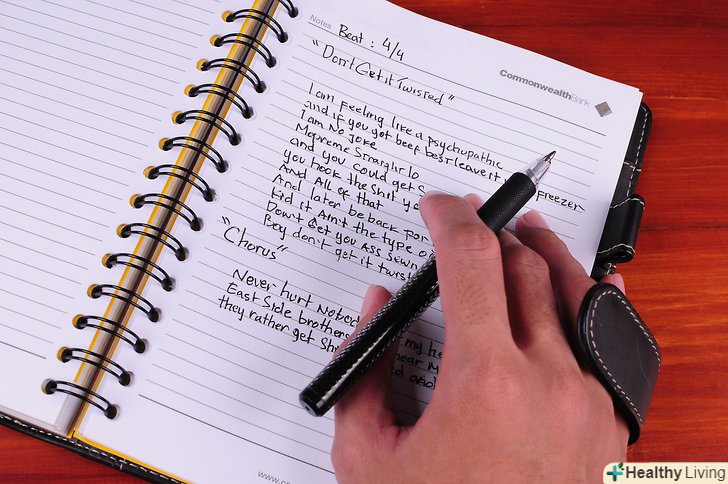 Notes
Beat : 4/4
CommonwealthBank
"Don't Get it Twisted"
I am feeling like a psychupathic
and if you got beef best leave it freezer
I am No joke
Mopreme Straight lo
and you could get S
you hook the shit yo
And All of that
And later be back for
Kid it Ain't the type o
Don't Get you Ass sewn
Boy don't get it twist
"Chorus"
Never hurt Nobod my h
East Side brothers near M
they rather get Sh
www.c
Healthy Living